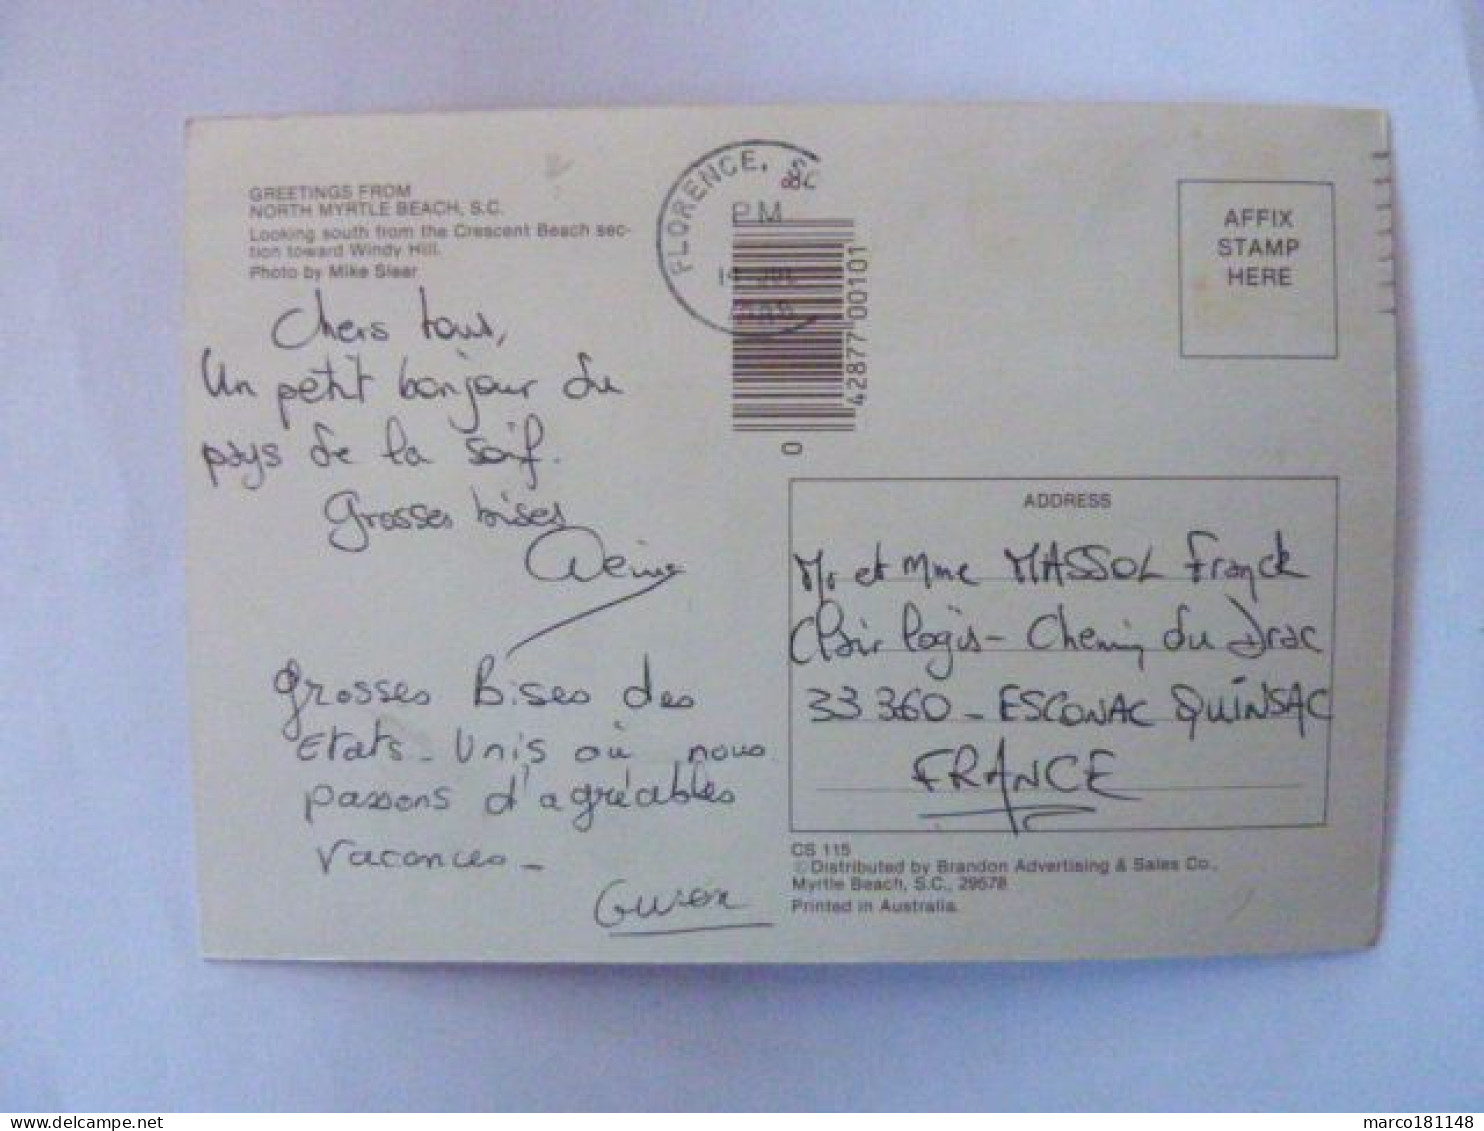 GREETINGS FROM
NORTH MYRTLE BEACH, S.C.
Looking south from the Crescent Beach sec-
tion toward Windy Hill.
Photo by Mike Slear
Chers tous,
Un petit bonjour du
pays de la soif.
Grosses bises
Grosses Bises des
Etats-Unis où nous
passons d'agréables
vacances-
FLORENCE, SC
PM
14 JUL
0 42877 00101
AFFIX
STAMP
HERE
ADDRESS
Mr et Mme MASSOL Franck
Clair logis - Chemin du Drac
33 360 - ESCONAC QUINSAC
FRANCE
CS 115
©Distributed by Brandon Advertising & Sales Co.,
Myrtle Beach, S.C., 29578
Printed in Australia.
marco181148